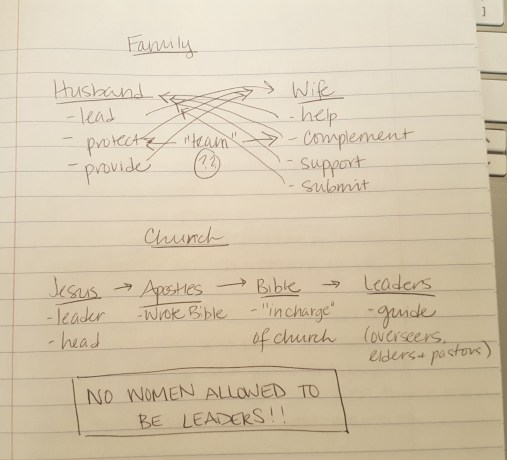 Family
Husband Wife
- lead - help
- protect "team" - complement
- provide ?? - support
- submit
Church
Jesus → Apostles → Bible → Leaders
- leader - Wrote Bible - "in charge" - guide
- head of church (overseers,
elders + pastors)
NO WOMEN ALLOWED TO
BE LEADERS!!